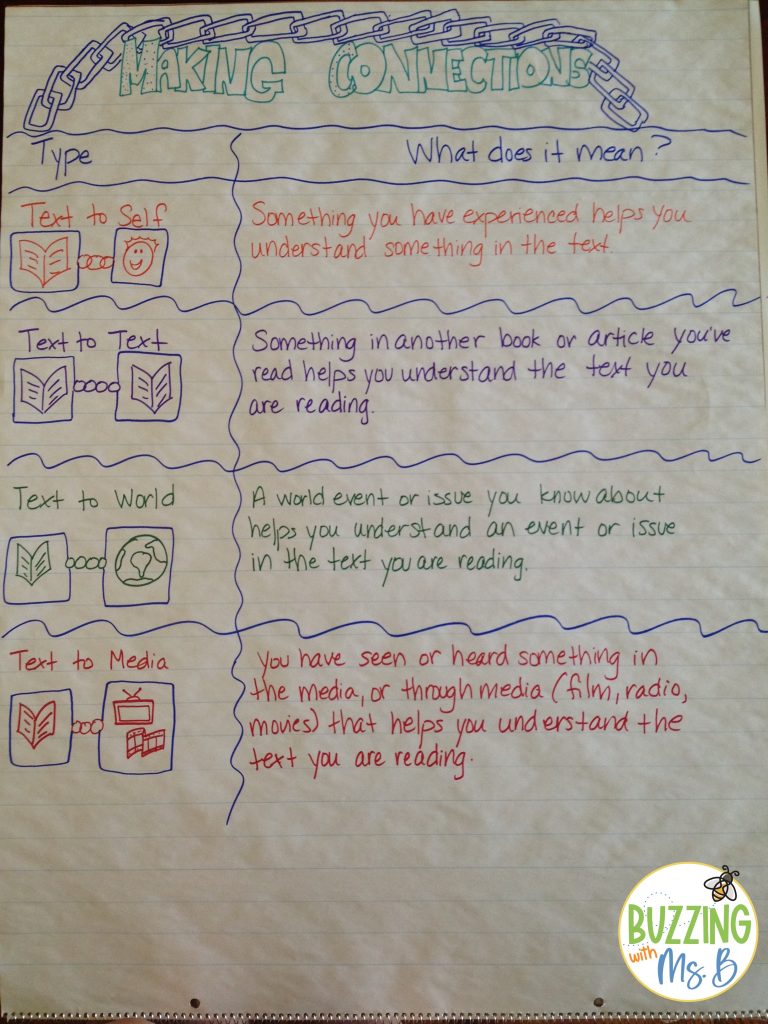 MAKING CONNECTIONS
Type
What does it mean?
Text to Self
Something you have experienced helps you
understand something in the text.
Text to Text
Something in another book or article you've
read helps you understand the text you
are reading.
Text to World
A world event or issue you know about
helps you understand an event or issue
in the text you are reading.
Text to Media
You have seen or heard something in
the media, or through media (film, radio,
movies) that helps you understand the
text you are reading.
BUZZING
with
Ms. B